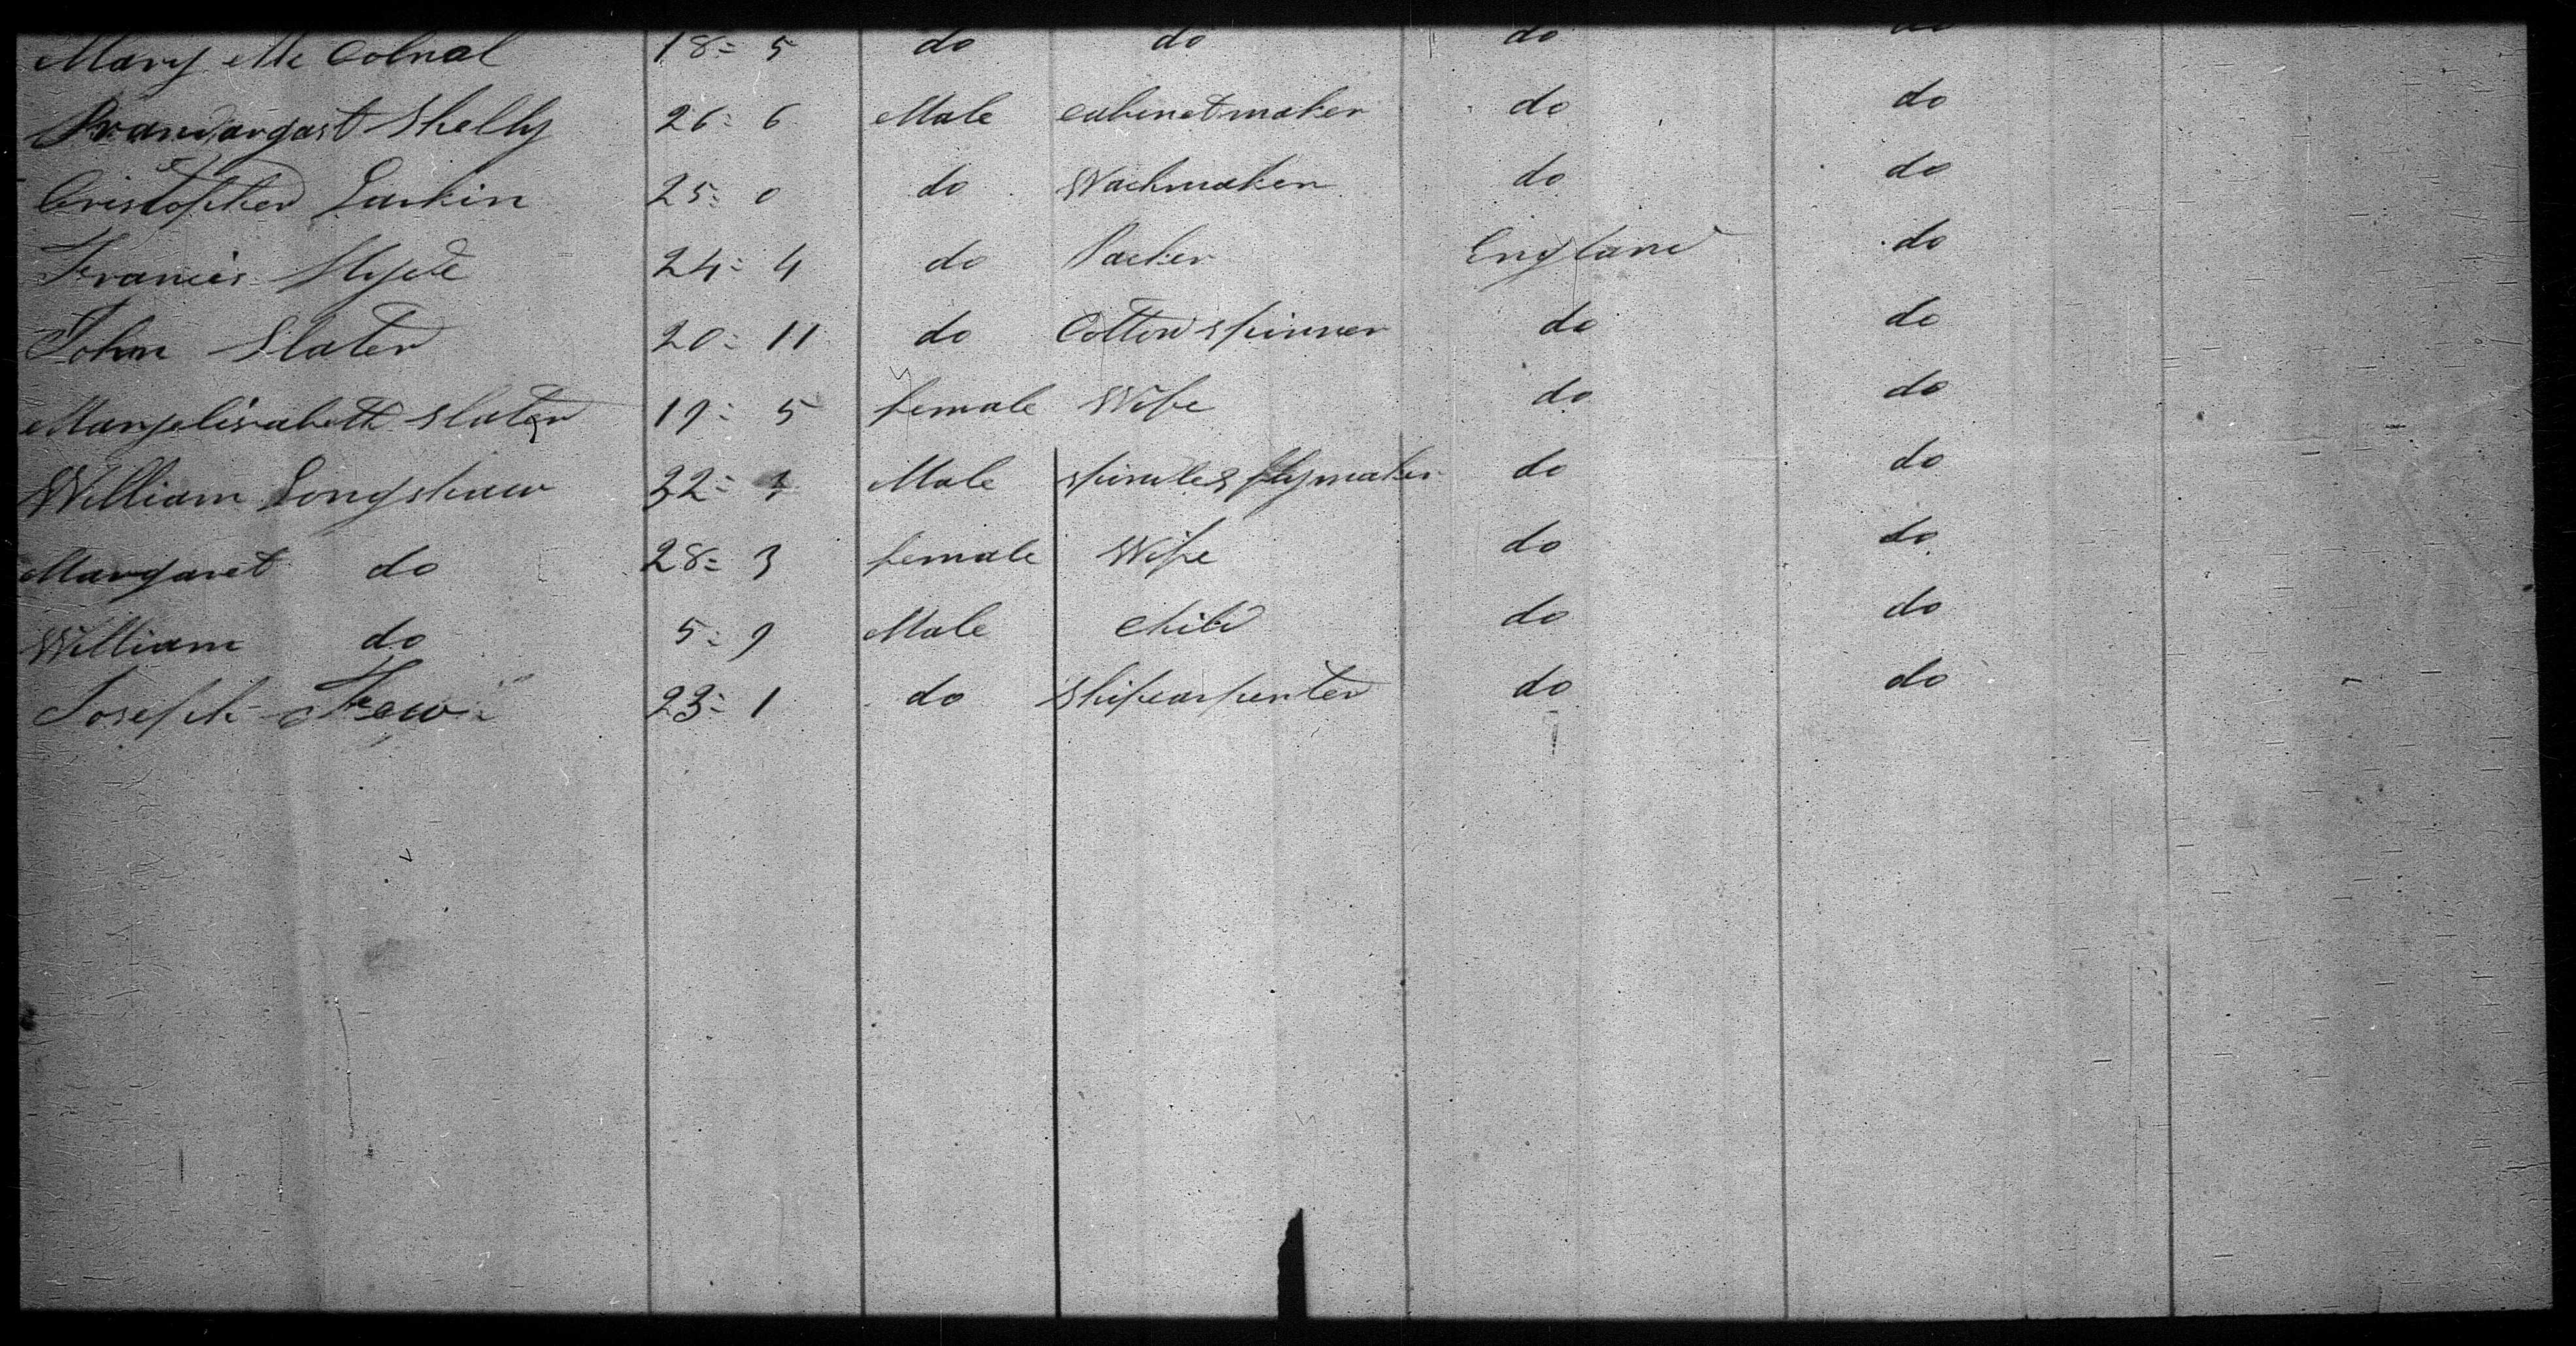 Mary Mc Colnal 18= 5 do do do do
Prandargast Shelly 26= 6 Male cabinetmaker do do
Cristopher Larkin 25= 0 do Wachmaker do do
Francis Hyde 24= 4 do Packer England do
John Slater 20= 11 do Cotton spinner do do
Maryelisabeth Slater 19= 5 female Wife do do
William Longshaw 32= Male spindle & flymaker do do
Margaret do 28= 3 female Wife do do
William do 5= 9 Male child do do
Joseph 23= 1 do Shipcarpenter do do